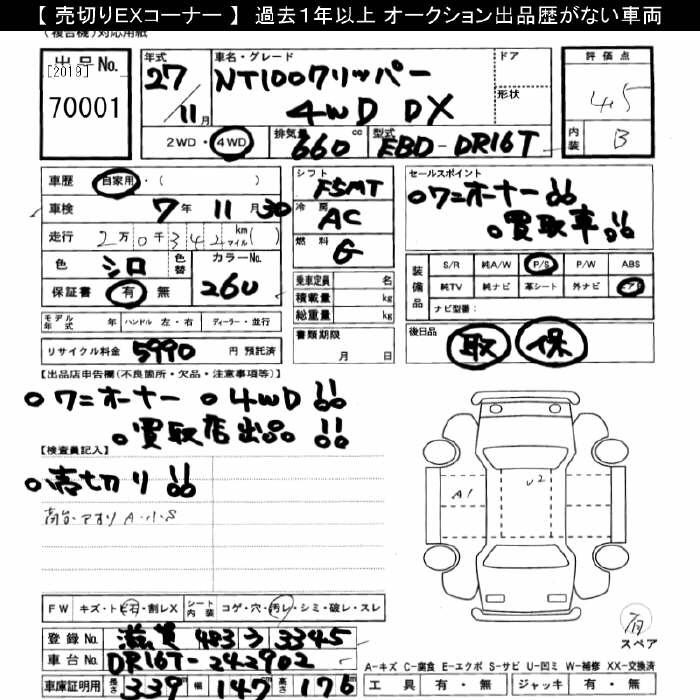 【 売切りEXコーナー 】 過去１年以上 オークション出品歴がない車両
(複合機)対応用紙
出品No.
[2019]
70001
年式 27/11月
車名・グレード NT100クリッパー 4WD DX
ドア
形状
2WD・4WD
排気量 660 cc
型式 EBD-DR16T
評価点 4.5
内装 B
車歴 自家用・( )
車検 7年11月30
走行 2万0千342 km マイル( )
色 シロ 色替
カラーNo. 26U
保証書 有 無
モデル年式 年 ハンドル 左・右 ディーラー・並行
リサイクル料金 5990 円 預託済
シフト F5MT
冷房 AC
燃料 G
乗車定員 名
積載量 kg
総重量 kg
書類期限
月 日
セールスポイント
○ワンオーナー!!
○買取車!!
装備品
S/R 純A/W P/S P/W ABS
純TV 純ナビ 革シート 外ナビ エアB
ナビ型番:
後日品 取 保
【出品店申告欄(不良箇所・欠品・注意事項等)】
○ワンオーナー ○4WD!!
○買取店出品!!
【検査員記入】
○売切り!!
荷台・アオリ A・小・S
A1
U2
FW キズ・トビ石・割レX
シート内装 コゲ・穴・汚レ・シミ・破レ・スレ
登録No. 滋賀 483 う 3345
車台No. DR16T-242902
車庫証明用 長さ 339 幅 147 高さ 176
スペア
A-キズ C-腐食 E-エクボ S-サビ U-凹ミ W-補修 XX-交換済
工具 有・無 ジャッキ 有・無